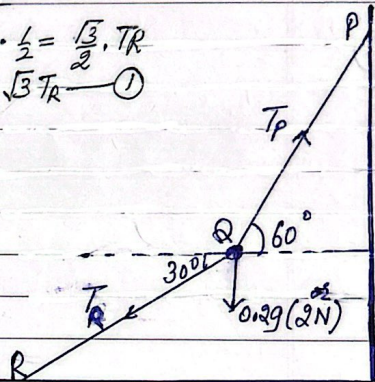 · 1/2 = √3/2 · TR
√3 TR — ①
P
TP
Q 60°
30°
TR
0.2g (2N) or
R